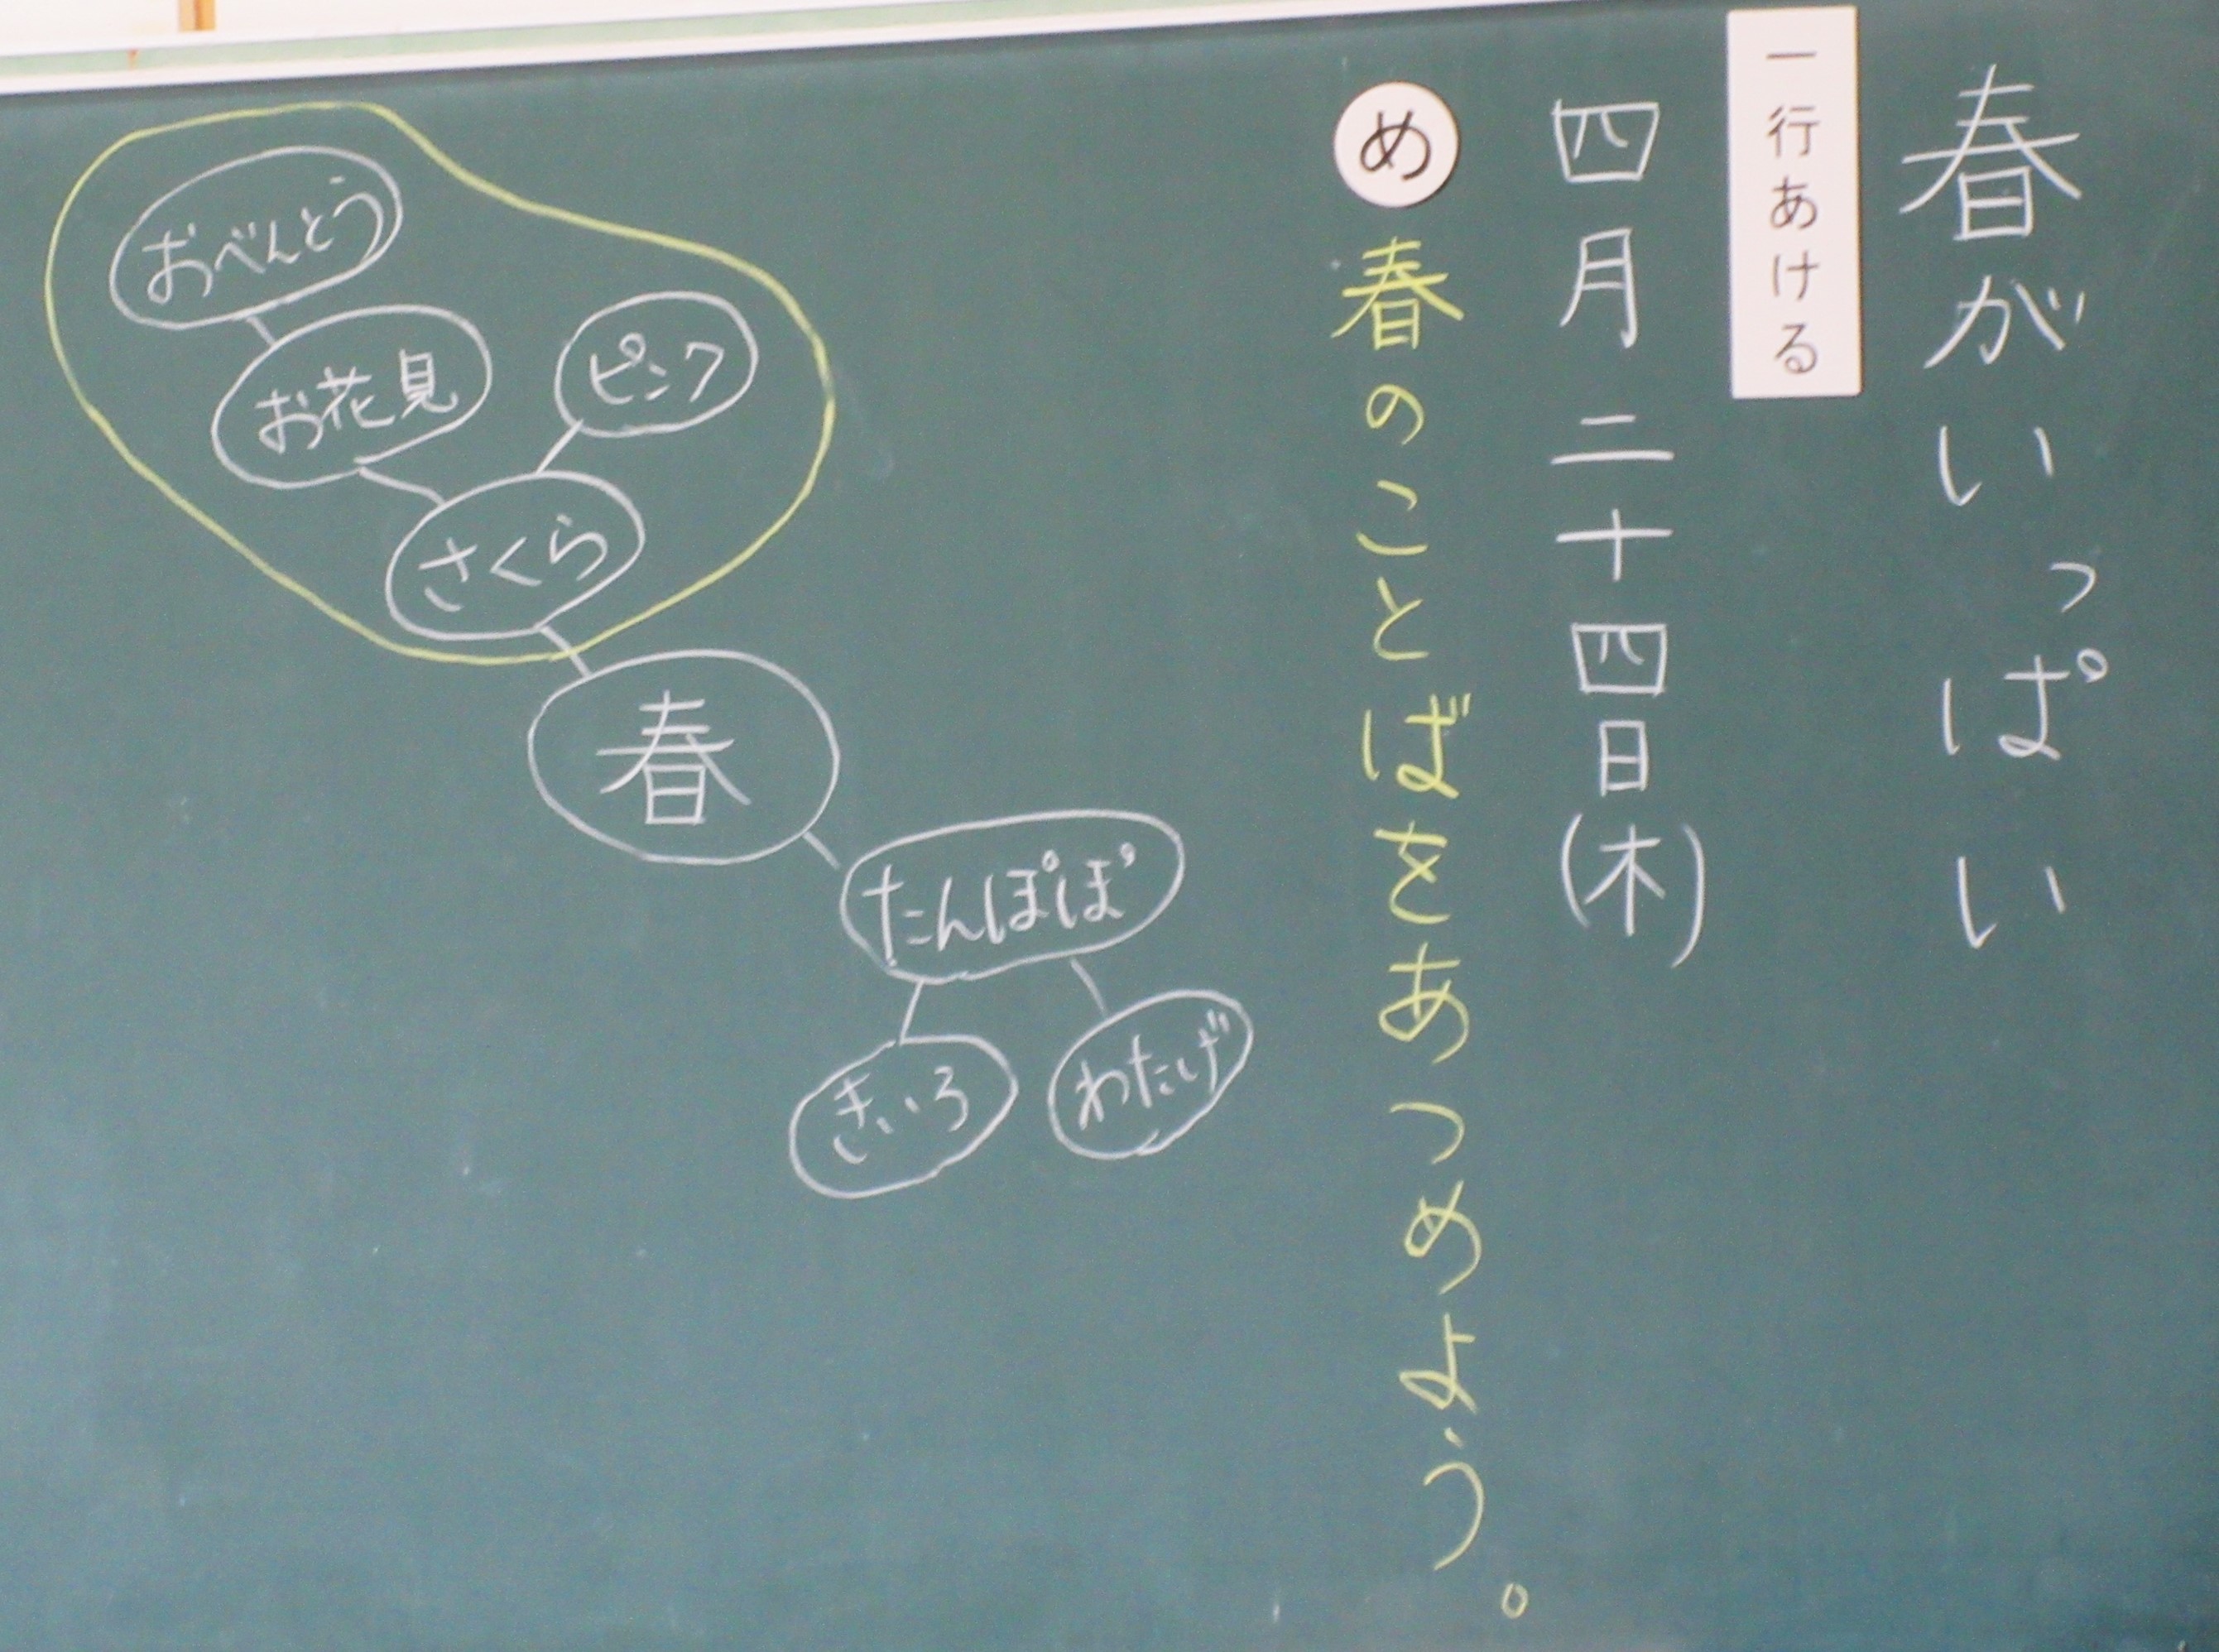 春がいっぱい
一行あける
四月二十四日(木)
め 春のことばをあつめよう。
ピンク
おべんとう
お花見
さくら
春
たんぽぽ
わたげ
きいろ